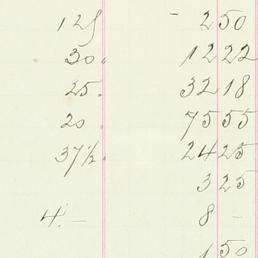 12½ - 2 50
30 " 12 22
25 " 32 18
20 " 75 55
37½ " 24 25
3 25
4. - 8 -
1 50